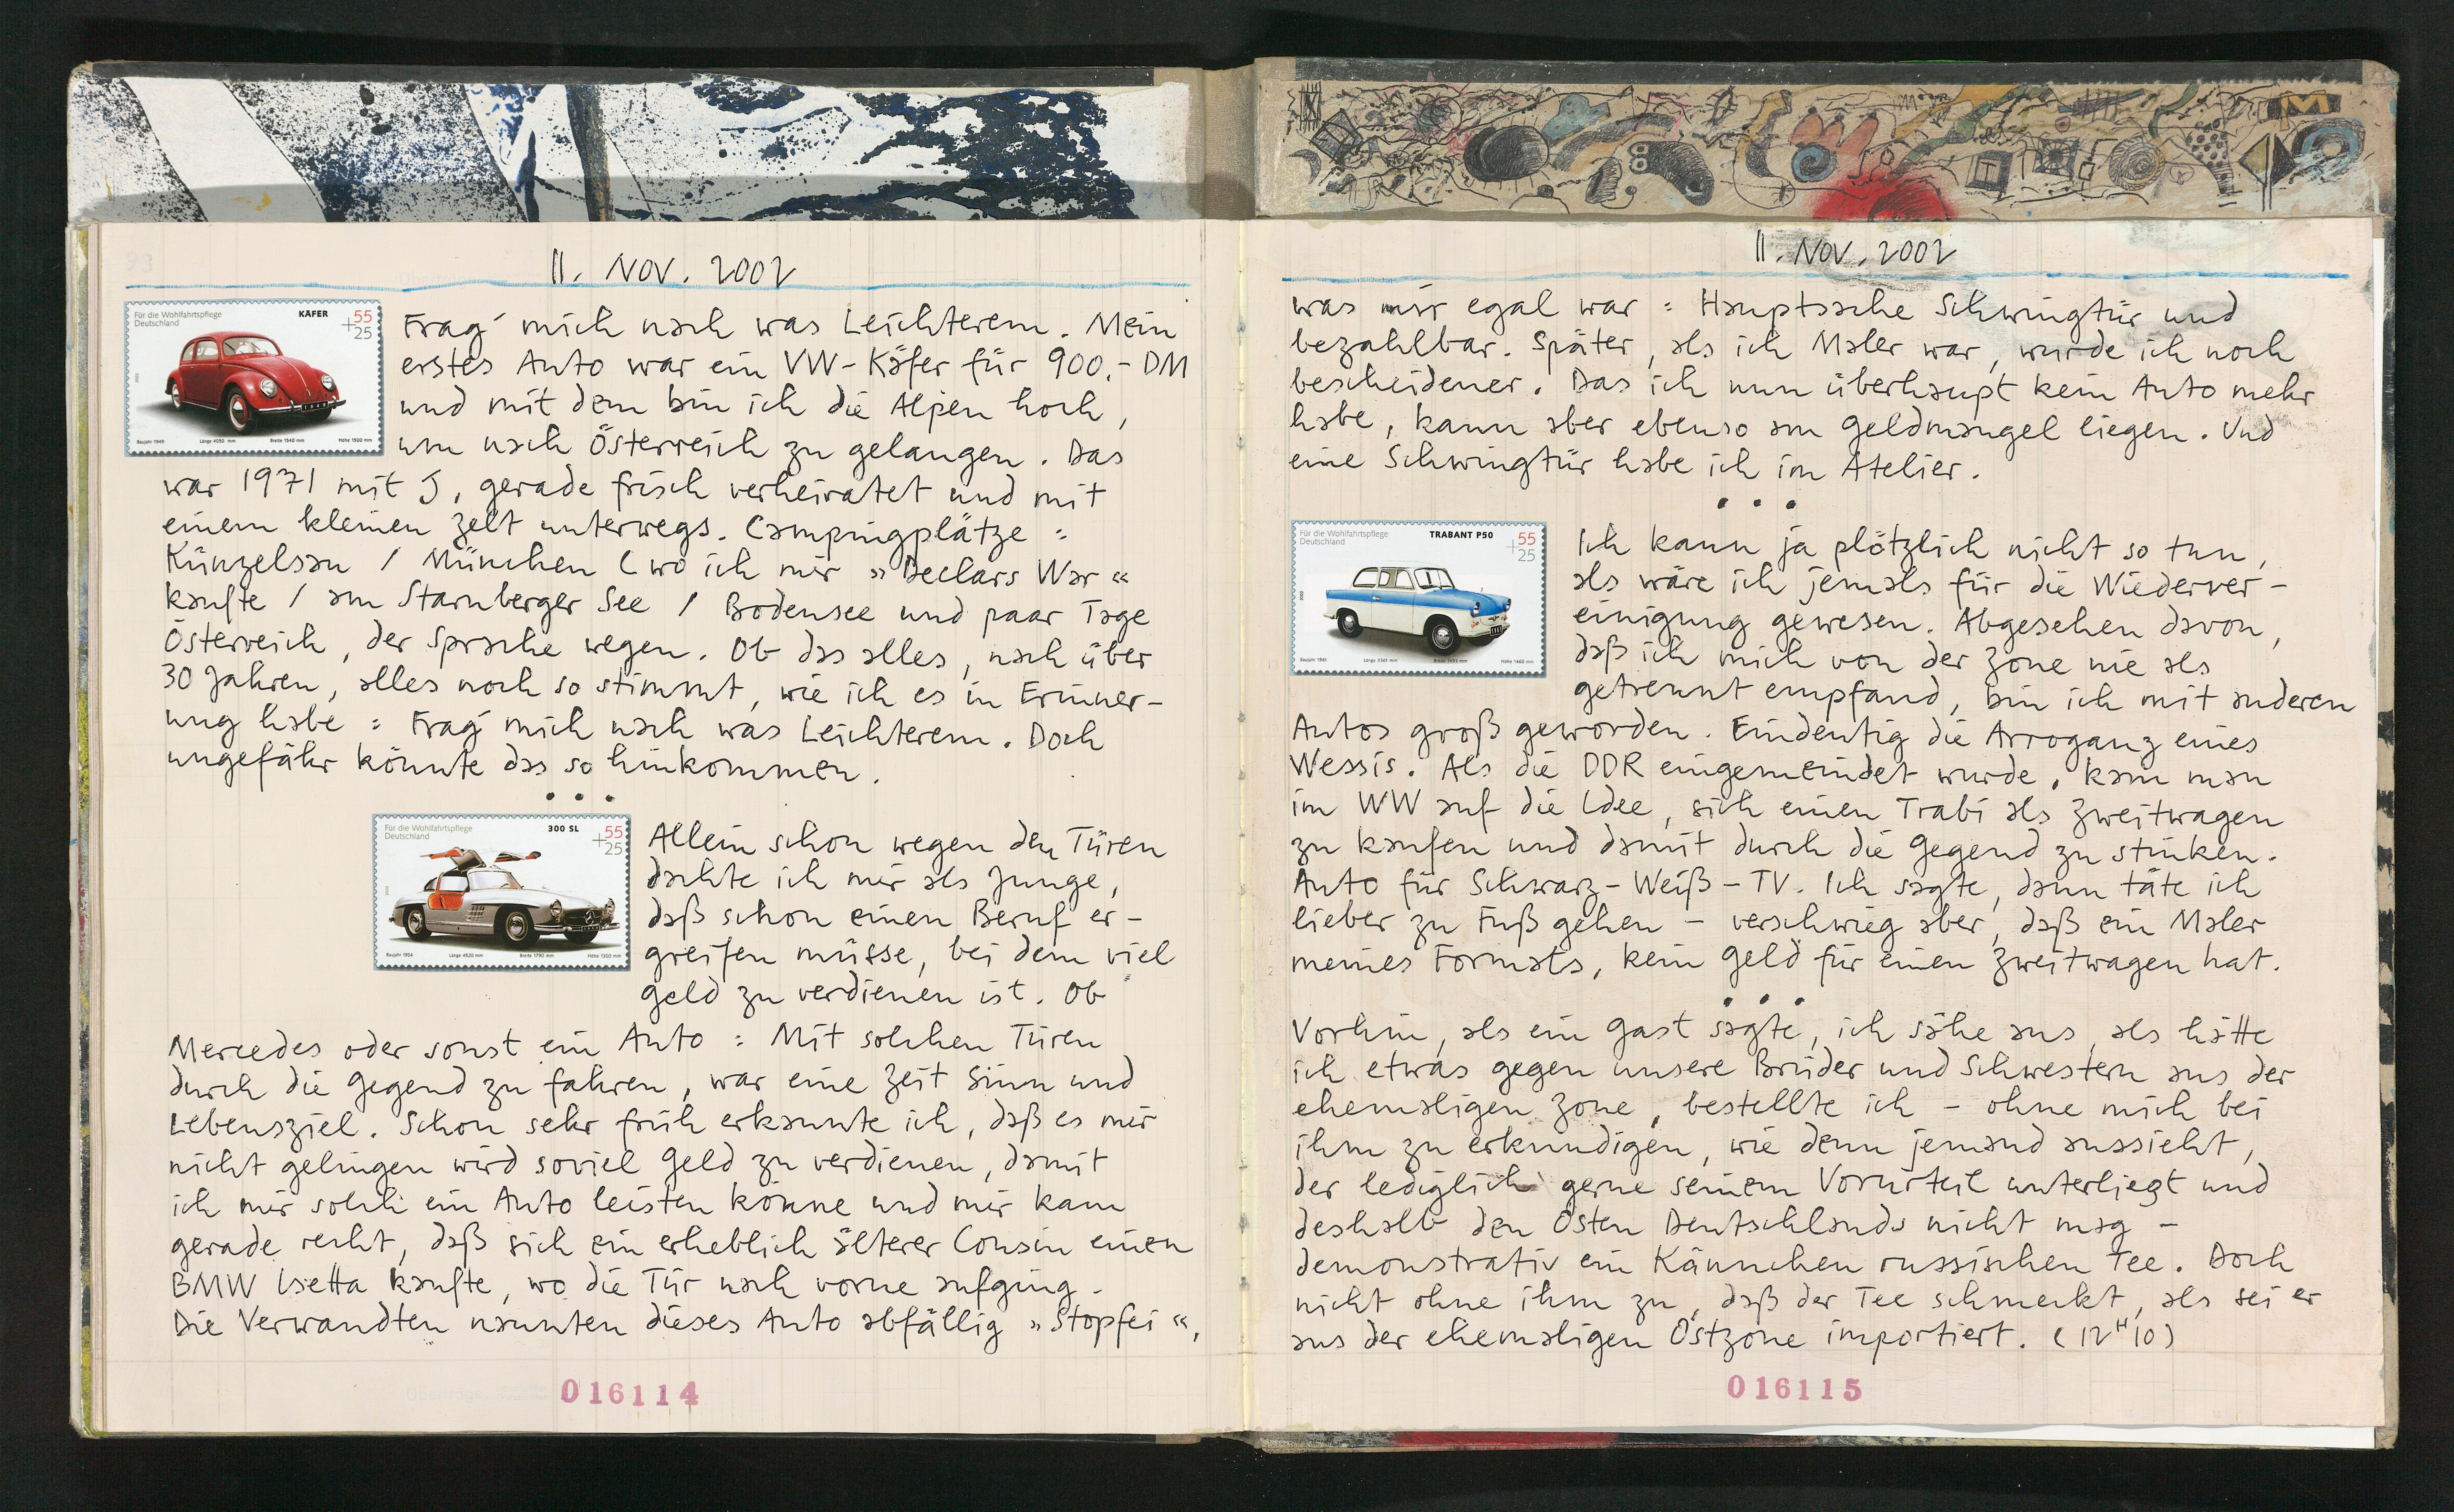 11. NOV. 2002
Für die Wohlfahrtspflege
Deutschland
KÄFER
55
+25
Baujahr 1949 Länge 4050 mm Breite 1540 mm Höhe 1500 mm
Frag' mich nach was Leichterem. Mein
erstes Auto war ein VW-Käfer für 900,- DM
und mit dem bin ich die Alpen hoch,
um nach Österreich zu gelangen. Das
war 1971 mit J, gerade frisch verheiratet und mit
einem kleinen Zelt unterwegs. Campingplätze :
Künzelsau / München (wo ich mir »Declare War«
kaufte / am Starnberger See / Bodensee und paar Tage
Österreich, der Sprache wegen. Ob das alles, nach über
30 Jahren, alles noch so stimmt, wie ich es in Erinner-
ung habe : Frag' mich nach was Leichterem. Doch
ungefähr könnte das so hinkommen.
• • •
Für die Wohlfahrtspflege
Deutschland
300 SL
55
+25
Baujahr 1954 Länge 4520 mm Breite 1790 mm Höhe 1300 mm
Allein schon wegen den Türen
dachte ich mir als Junge,
daß schon einen Beruf er-
greifen müsse, bei dem viel
Geld zu verdienen ist. Ob
Mercedes oder sonst ein Auto : Mit solchen Türen
durch die Gegend zu fahren, war eine Zeit Sinn und
Lebensziel. Schon sehr früh erkannte ich, daß es mir
nicht gelingen wird soviel Geld zu verdienen, damit
ich mir solch ein Auto leisten könne und mir kam
gerade recht, daß sich ein erheblich älterer Cousin einen
BMW Isetta kaufte, wo die Tür nach vorne aufging.
Die Verwandten nannten dieses Auto abfällig »Stopfei«,
016114
11. NOV. 2002
was mir egal war : Hauptsache Schwingtür und
bezahlbar. Später, als ich Maler war, wurde ich noch
bescheidener. Das ich nun überhaupt kein Auto mehr
habe, kann aber ebenso am Geldmangel liegen. Und
eine Schwingtür habe ich im Atelier.
• • •
Für die Wohlfahrtspflege
Deutschland
TRABANT P50
55
+25
Länge 3361 mm Breite 1493 mm Höhe 1460 mm
Ich kann ja plötzlich nicht so tun,
als wäre ich jemals für die Wiederver-
einigung gewesen. Abgesehen davon,
daß ich mich von der Zone nie als
getrennt empfand, bin ich mit anderen
Autos groß geworden. Eindeutig die Arroganz eines
Wessis. Als die DDR eingemeindet wurde, kam man
im WW auf die Idee, sich einen Trabi als Zweitwagen
zu kaufen und damit durch die Gegend zu stinken.
Auto für Schwarz-Weiß-TV. Ich sagte, dann täte ich
lieber zu Fuß gehen - verschwieg aber, daß ein Maler
meines Formats, kein Geld für einen Zweitwagen hat.
• • •
Vorhin, als ein Gast sagte, ich sähe aus, als hätte
ich etwas gegen unsere Brüder und Schwestern aus der
ehemaligen Zone, bestellte ich - ohne mich bei
ihm zu erkundigen, wie denn jemand aussieht,
der lediglich gerne seinem Vorurteil unterliegt und
deshalb den Osten Deutschlands nicht mag -
demonstrativ ein Kännchen russischen Tee. Doch
nicht ohne ihm zu, daß der Tee schmeckt, als sei er
aus der ehemaligen Ostzone importiert. (12H10)
016115